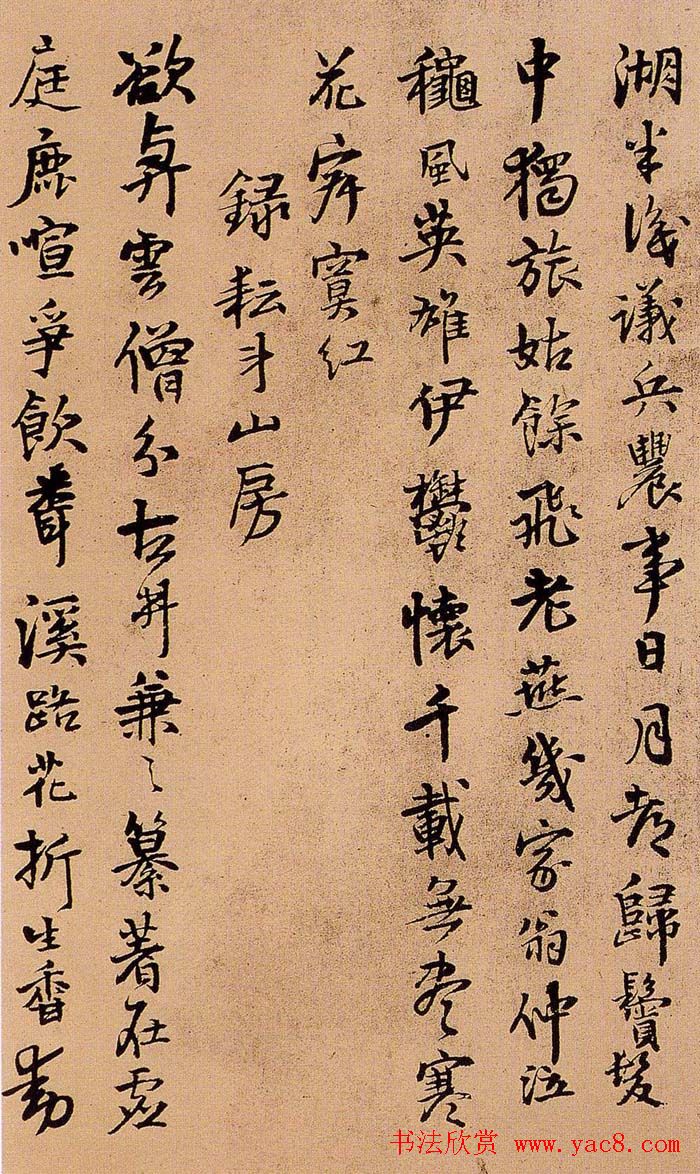 湖半議兵農事日月都歸鬢髮
中獨旅姑餘飛老燕幾家翁仲泣
龝風英雄伊鬱懷千載無盡寒
花寂寞紅
録耘斗山房
欲雲僧分古井兼〻纂著在虛
庭鹿喧爭飲聲溪路花折生香
书法欣赏 www.yac8.com